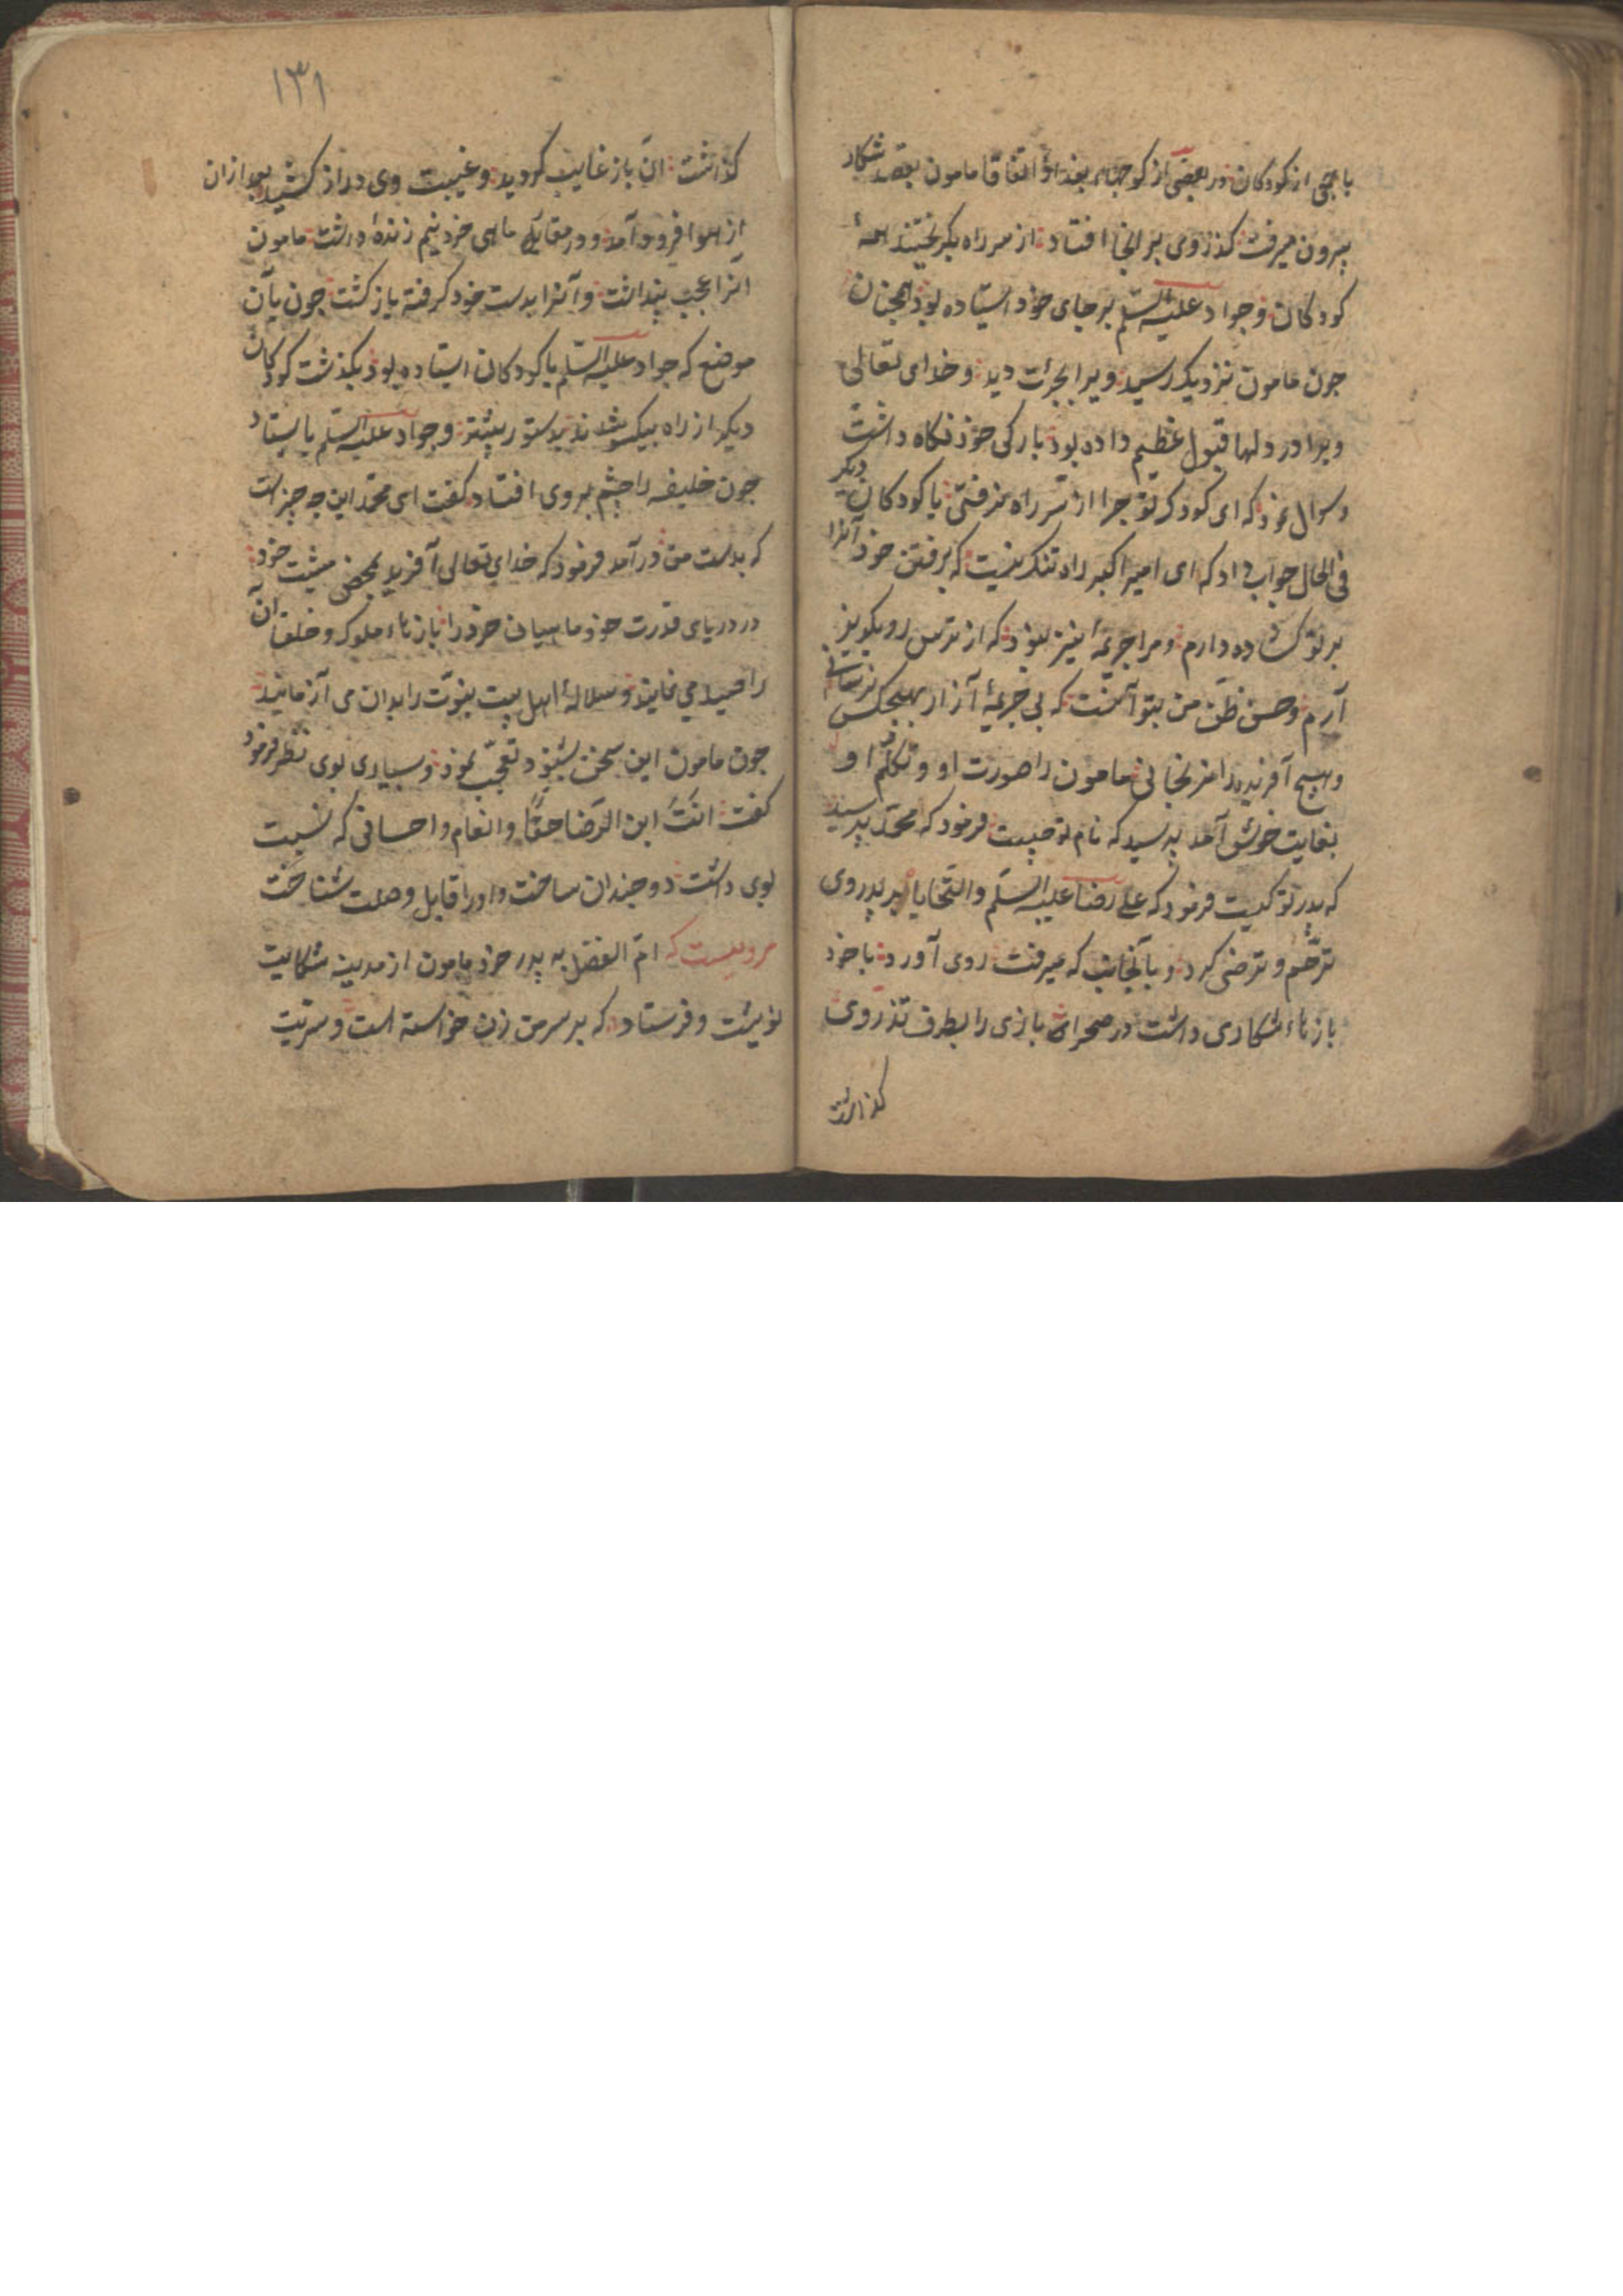 با جمعی از کودکان در بعضی از کوچهاء بغداد اتفاقا مامون بقصد شکار
بیرون میرفت کذر وی بر انجا افتاد از سر راه بکریختند همهٔ
کودکان و جواد علیه السلم بر جای خوذ استاده بوذ همچنان
جون مامون نزدیک رسید ویرا بجرات دید و خدای تعالی
ویرا در دلها قبول عظیم داده بود بارکی خوذ نکاه داشت
و سوال نموذ که ای کودک تو جرا از سر راه نرفتی با کودکان دیکر
فی الحال جواب داد که ای امیر اکبر راه تنک نیست که برفتن خوذ آنرا
بر تو کشاده دارم و مرا جریمهٔ نیز نبوذ که از ترس رو بکریز
آرم و حسن ظن من بتو آنست که بی جریمهٔ آزار بهیچکس نرسانی
و هیچ آفریده را نرنجانی مامون را صورت او و تکلم او
بغایت خوش آمد پرسید که نام تو چیست فرمود که محمد پرسید
که پدر تو کیست فرموذ که علی رضا علیه السلم والتحایا بر پدر وی
ترحم و ترضی کرد و بآنجانب که میرفت روی آورد با خود
بازهاء شکاری داشت در صحرا بازی را بطرف تذروی
کذاشت
۱۳۱
کذاشت ان باز غایب کردید و غیبت وی دراز کشید بعد ازان
از هوا فرود آمد و در منقارش ماهی خرد نیم زندهٔ داشت مامون
انرا عجب پنداشت و آنرا بدست خود کرفته باز کشت جون بآن
موضع که جواد علیه السلم با کودکان استاده بوذ بکذشت کودکان
دیکر از راه بیکسو شدند بدستور پیشتر و جواد علیه السلم بایستاد
جون خلیفه را چشم بروی افتاد کفت ای محمد این چه چیز است
که بدست من درآمد فرموذ که خدای تعالی آفریذ بمحض مشیت خود
در دریای قدرت خوذ ماهیان خرد را بازهاء ملوک و خلفا آن
را صید می نماید و سلالهٔ اهل بیت نبوت را بدان می آزمایند
جون مامون این سخن بشنود تعجب نموذ و بسیاری بوی نظر فرمود
کفت انت ابن الرضا حقا و انعام و احسانی که نسبت
بوی داشت دوجندان ساخت و او را قابل وصلت شناخت
مرویست که ام الفضل به پدر خوذ مامون از مدینه شکایت
نوشت و فرستاد که بر سر من زن خواسته است و سریت